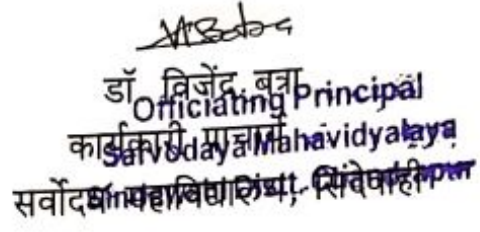 डॉ. विजेंद्र बत्रा
Officiating Principal
कार्यकारी प्राचार्य
Sarvodaya Mahavidyalaya
सर्वोदय महाविद्यालय, सिंदेवाही
Sindewahi Distt.